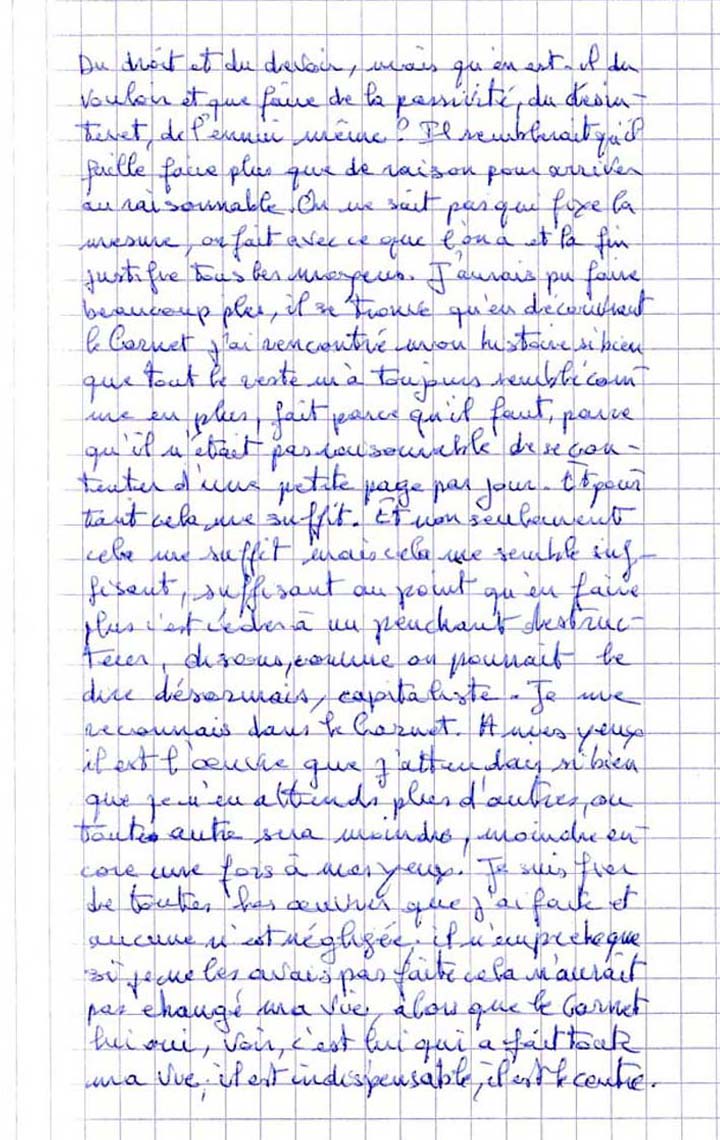 Du droit et du devoir, mais qu'en est-il du
vouloir et que faire de la passivité, du désin-
téret, de l'ennui même ? Il semblerait qu'il
faille faire plus que de raison pour arriver
au raisonnable. On ne sait pas qui fixe la
mesure, on fait avec ce que l'on a et la fin
justifie tous les moyens. J'aurais pu faire
beaucoup plus, il se trouve qu'en découvrant
le Carnet j'ai rencontré mon histoire si bien
que tout le reste m'a toujours semblé com-
me en plus, fait parce qu'il faut, parce
qu'il n'était pas raisonnable de se con-
tenter d'une petite page par jour. Et pour
tant cela me suffit. Et non seulement
cela me suffit mais cela me semble suf-
fisant, suffisant au point qu'en faire
plus c'est céder à un penchant destruc-
teur, disons, comme on pourrait le
dire désormais, capitaliste. Je me
reconnais dans le Carnet. A mes yeux
il est l'œuvre que j'attendais si bien
que je n'en attends plus d'autres, ou
toute autre sera moindre, moindre en-
core une fois à mes yeux. Je suis fier
de toutes les œuvres que j'ai faite et
aucune n'est négligée, il n'empreche que
si je ne les avais pas faite cela n'aurait
pas changé ma vie, alors que le Carnet
lui oui, voir, c'est lui qui a fait toute
ma vie, il est indispensable, il est le centre.